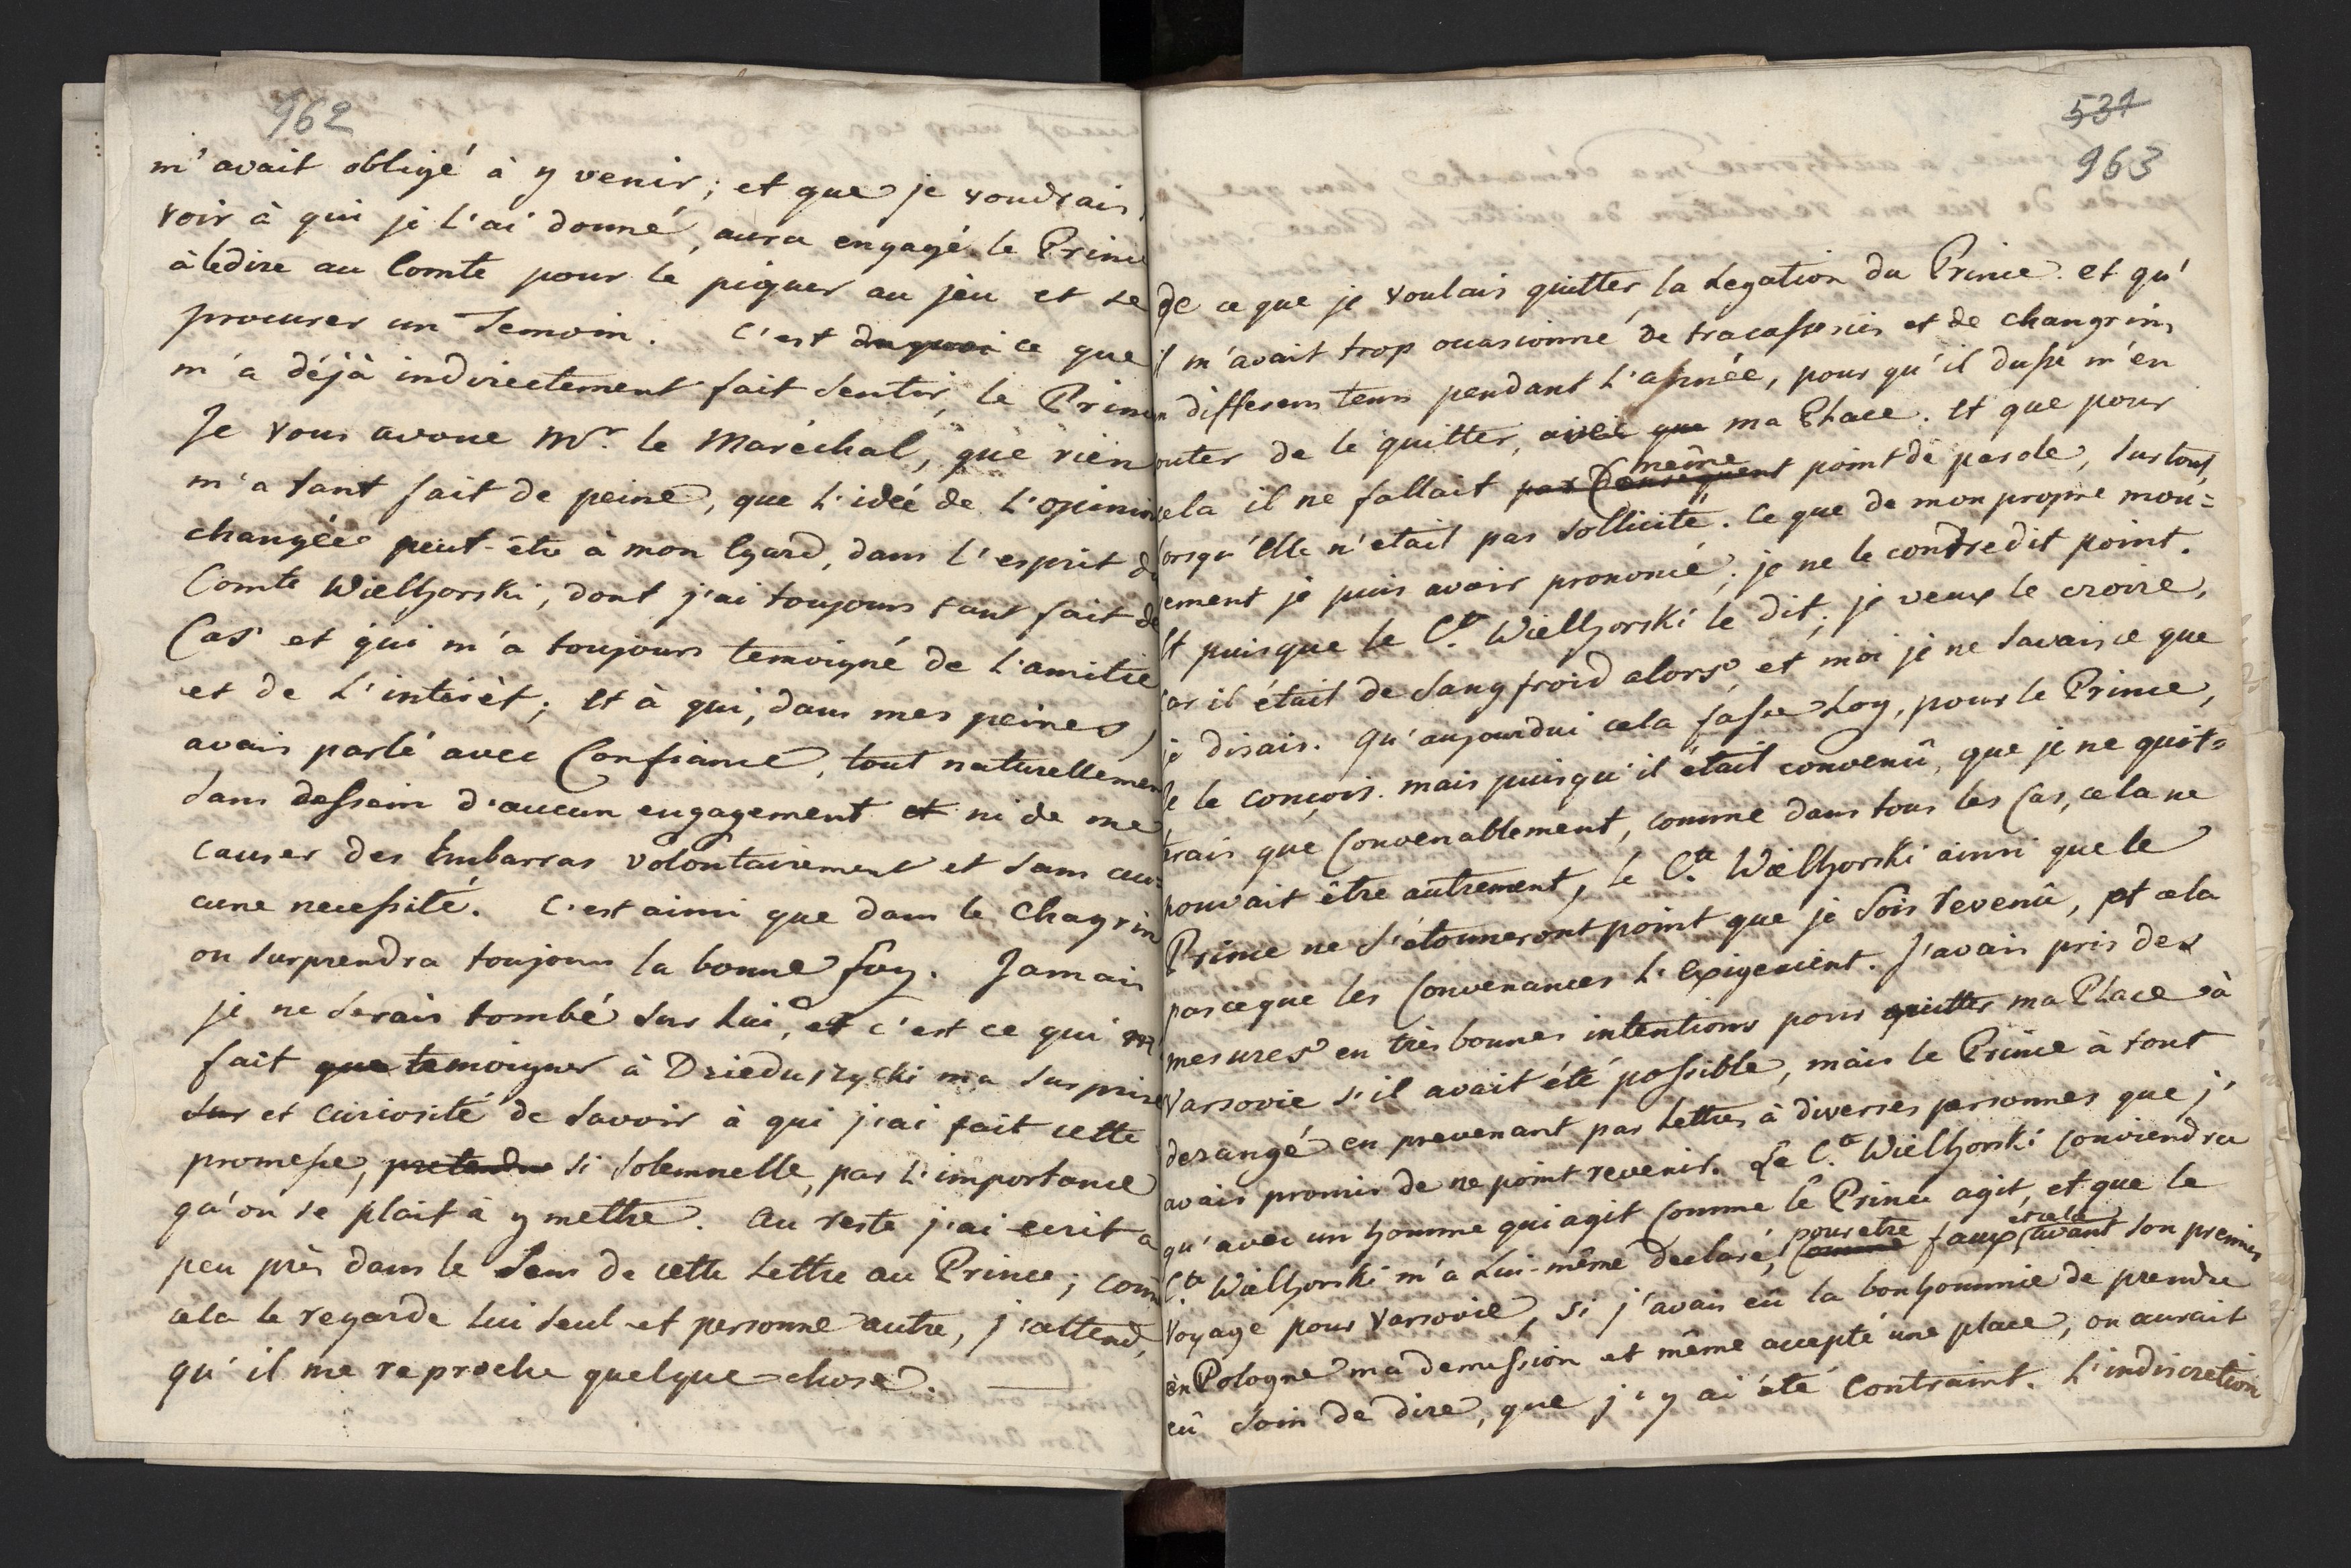 962
m'avait obligé à y venir; et que je voudrais,
voir à qui je l'ai donné, aura engagé le Prince
à le dire au Comte pour le piquer au jeu et se
procurer un Temoin. C'est du quoi ce que
m'a déjà indirectement fait sentir, le Prince
Je vous avoue Mr. le Maréchal, que rien
m'a tant fait de peine, que l'idée de l'opinion
changée peut-être à mon Egard, dans l'esprit du
Comte Wielhorski, dont j'ai toujours tant fait de
Cas et qui m'a toujours temoigné de l'amitie
et de l'intérèt; et à qui, dans mes peines, j
avais parlé avec Confiance, tout naturellement
sans dessein d'aucun engagement et ni de me
causer des Embarras volontairement et sans au=
cune necessité. C'est ainsi que dans le Chagrin
on surprendra toujours la bonne foy. Jamais
je ne serais tombé sur lui, et c'est ce qui m
fait que temoigner à Drieduszycki ma surprise
sur et curiosité de savoir à qui j'ai fait cette
promesse, pretendue si solemnelle, par l'importance
qu'on se plait à y mettre. Au reste j'ai ecrit a
peu près dans le Sens de cette Lettre au Prince; com̃
cela le regarde lui seul et personne autre, j'attend,
qu'il me reproche quelque chose.
531
963
de ce que je voulais quitter la Legation du Prince. et qu'
il m'avait trop occasionné de tracasseries et de changrins
en differens tems pendant l'année, pour qu'il dusse m'en
outer de le quitter, avec que ma Place. Et que pour
cela il ne fallait par Consequent même point de parole, surtout,
lorsqu'Elle n'était pas sollicité. Ce que de mon propre mou=
vement je puis avoir prononcé; je ne le contredit point.
Et puisque le Cte Wielhorski le dit; je veux le croire,
car il était de Sang froid alors, et moi je ne savais ce que
je disais. Qu'aujourdui cela fasse Loy, pour le Prince,
Je le conçois. mais puisqu'il était convenû, que je ne quit=
trais que Convenablement, comme dans tous les Cas, cela ne
pouvait être autrement, le Cte Wielhorski ainsi que le
Prince ne s'étonneront point que je sois revenû, et cela
parceque les Convenances l'exigeaient. J'avais pris des
mesures en très bonnes intentions pour quitter ma Place à
Varsovie s'il avait été possible, mais le Prince à tout
derangé en prevenant par Lettres à diverses personnes que j'
avais promis de ne point revenir. Le Cte Wielhorski conviendra
qu'avec un homme qui agit Comme le Prince agit, et que le
Cte Wielhorski m'a lui-même declaré, Comme pour etre faux et cela avant son premier
Voyage pour Varsovie, si j'avais eû la bonhommie de prendre
en Pologne ma demission et même accepté une place, on aurait
eû soin de dire, que j'y ai été Contraint. L'indiscretion